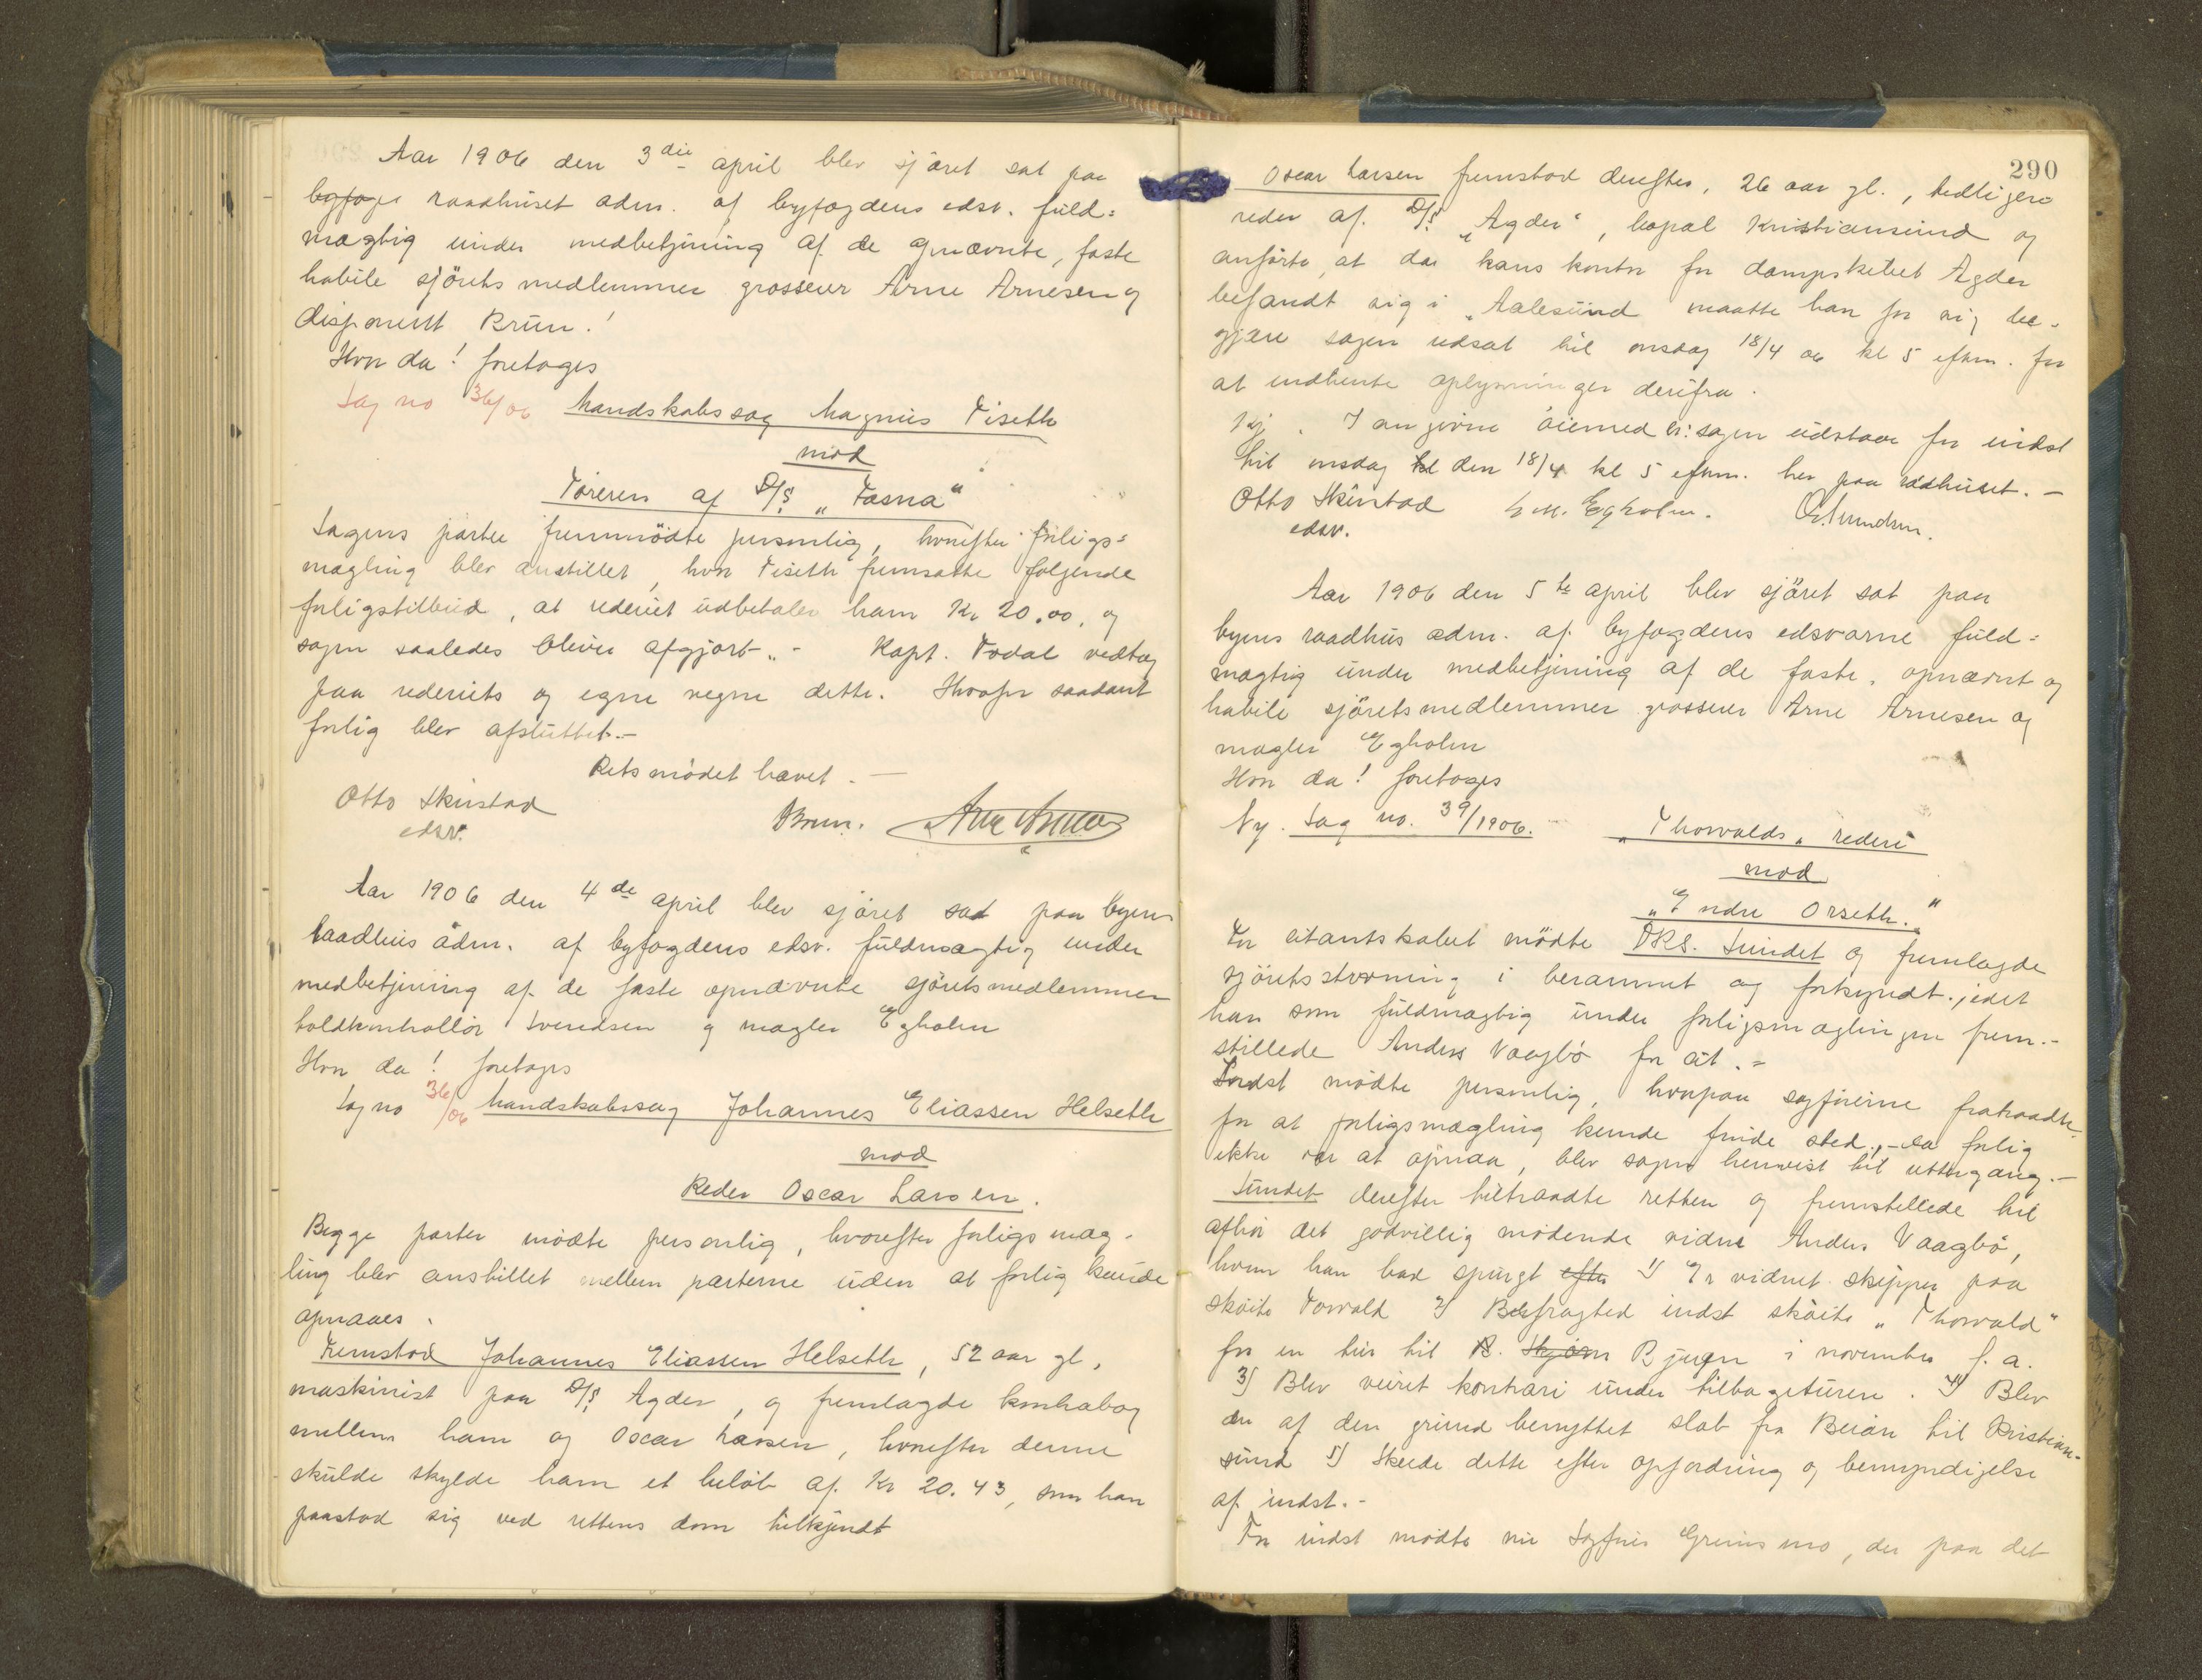 Aar 1906 den 3die april blev sjöret sat paa
byfoge raadhuset adm. af byfogdens edsv. fuld=
mægtig under medbetjening af de opnævnte, faste
habile sjörets medlemmer grosserer Arne Arnesen og
disponent Brun.!
Hvor da! foretoges
Sag no 36/06 Mandskabssag Magnus Fiseth
mod
Föreren af D/S "Fosna"
Sagens parter fremmödte personlig, hvorefter forligs=
mægling blev anstillet, hvor Fiseth fremsatte følgende
forligstilbud, at rederiet udbetaler ham Kr 20.00, og
sagen saaledes bliver afgjort.- Kapt. Fodal vedtog
paa rederiets og egne vegne dette. Hvorfor saadant
forlig blev afsluttet.-
Retsmödet hævet.-
Otto Skirstad Brun. Arne Arnesen
edsv.
Aar 1906 den 4de april blev sjöret sat paa byens
raadhus adm. af byfogdens edsv. fuldmægtig under
medbetjening af de faste opnævnte sjöretsmedlemmer
toldkontrollör Svendsen og mægler Egholm
Hvor da! foretoges
Sag no 36/06 Mandskabssag Johannes Eliassen Helseth
mod
Reder Oscar Larsen.
Begge parter mödte personlig, hvorefter forligs mæg-
ling blev anstillet mellem parterne uden at forlig kunde
opnaaes.
Fremstod Johannes Eliassen Helseth, 52 aar gl,
maskinist paa D/S Agder, og fremlagde kontrabog
mellem ham og Oscar Larsen, hvorefter denne
skulde skylde ham et beløb af Kr 20.43, som han
paastod sig ved rettens dom tilkjendt
290
Oscar Larsen fremstod derefter, 26 aar gl., tidligere
reder af D/S "Agder", bopæl Kristiansund og
anførte, at da hans kontor for dampskibet Agder
befandt sig i Aalesund maatte han for sig be-
gjære sagen udsat til onsdag 18/4 06 kl 5 efterm. for
at indhente oplysninger derifra.
I angivne öiemed bl: sagen udstaar for indst
til onsdag kl den 18/4 kl 5 efterm. her paa rådhuset.-
Otto Skirstad Egholm. Svendsen.
edsv.
Aar 1906 den 5te april blev sjöret sat paa
byens raadhus adm. af byfogdens edsvorne fuld=
mægtig under medbetjening af de faste, opnævnt og
habile sjöretsmedlemmer grosserer Arne Arnesen og
mægler Egholm
Hvor da! foretoges
Ny. Sag no. 39/1906. "Thorvalds" rederi
mod
"Endre Orseth."
For citantskabet mödte O.R.S. Sundet og fremlagde
sjöretsstevning i berammet og forkyndt, idet
han som fuldmægtig under forligsmæglingen frem-
stillede Anders Vaagbö for cit.-
Indst mödte personlig, hvorpaa sagförerne fratraadte
for at forligsmægling kunde finde sted,- da forlig
ikke var at opnaa, blev sagen henvist til rettergang.-
Sundet derefter tiltraadte retten og fremstillede til
afhör det godvillig mödende vidne Anders Vaagbö,
hvem han bad spurgt efter 1) Er vidnet skipper paa
sköite Torvald 2) Befragted indst sköite "Thorvald"
for en tur til R. Skjørn Bjugn i november f. a.
3) Blev veiret kontrari under tilbageturen. 4) Blev
der af den grund benyttet slæb fra Beian til Kristian-
sund 5) Skede dette efter opfordring og bemyndigelse
af indst.-
For indst mödte nu Sagförer Grimsmo, der paa det